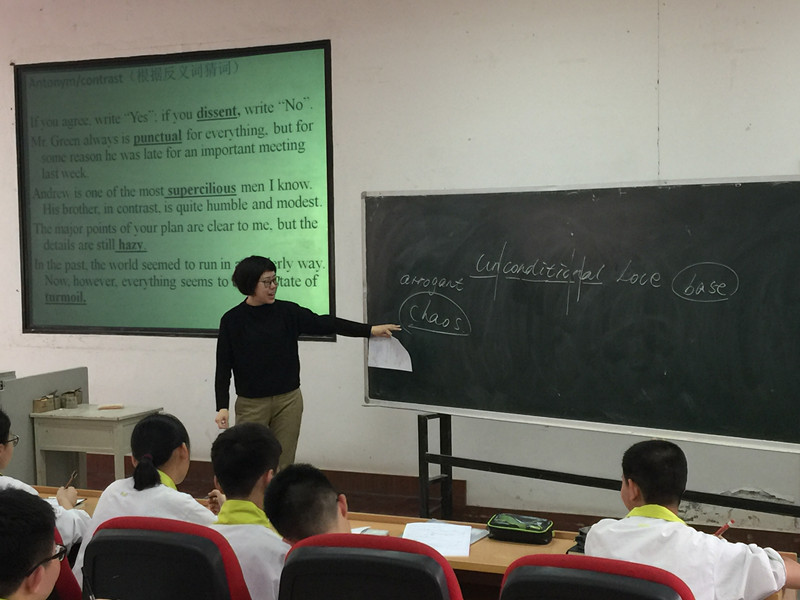 Antonym/contrast (根据反义词猜词)
If you agree, write "Yes"; if you dissent, write "No".
Mr. Green always is punctual for everything, but for
some reason he was late for an important meeting
last week.
Andrew is one of the most supercilious men I know.
His brother, in contrast, is quite humble and modest.
The major points of your plan are clear to me, but the
details are still hazy.
In the past, the world seemed to run in a erly way.
Now, however, everything seems to tate of
turmoil.
unconditional Love base
arrogant
chaos